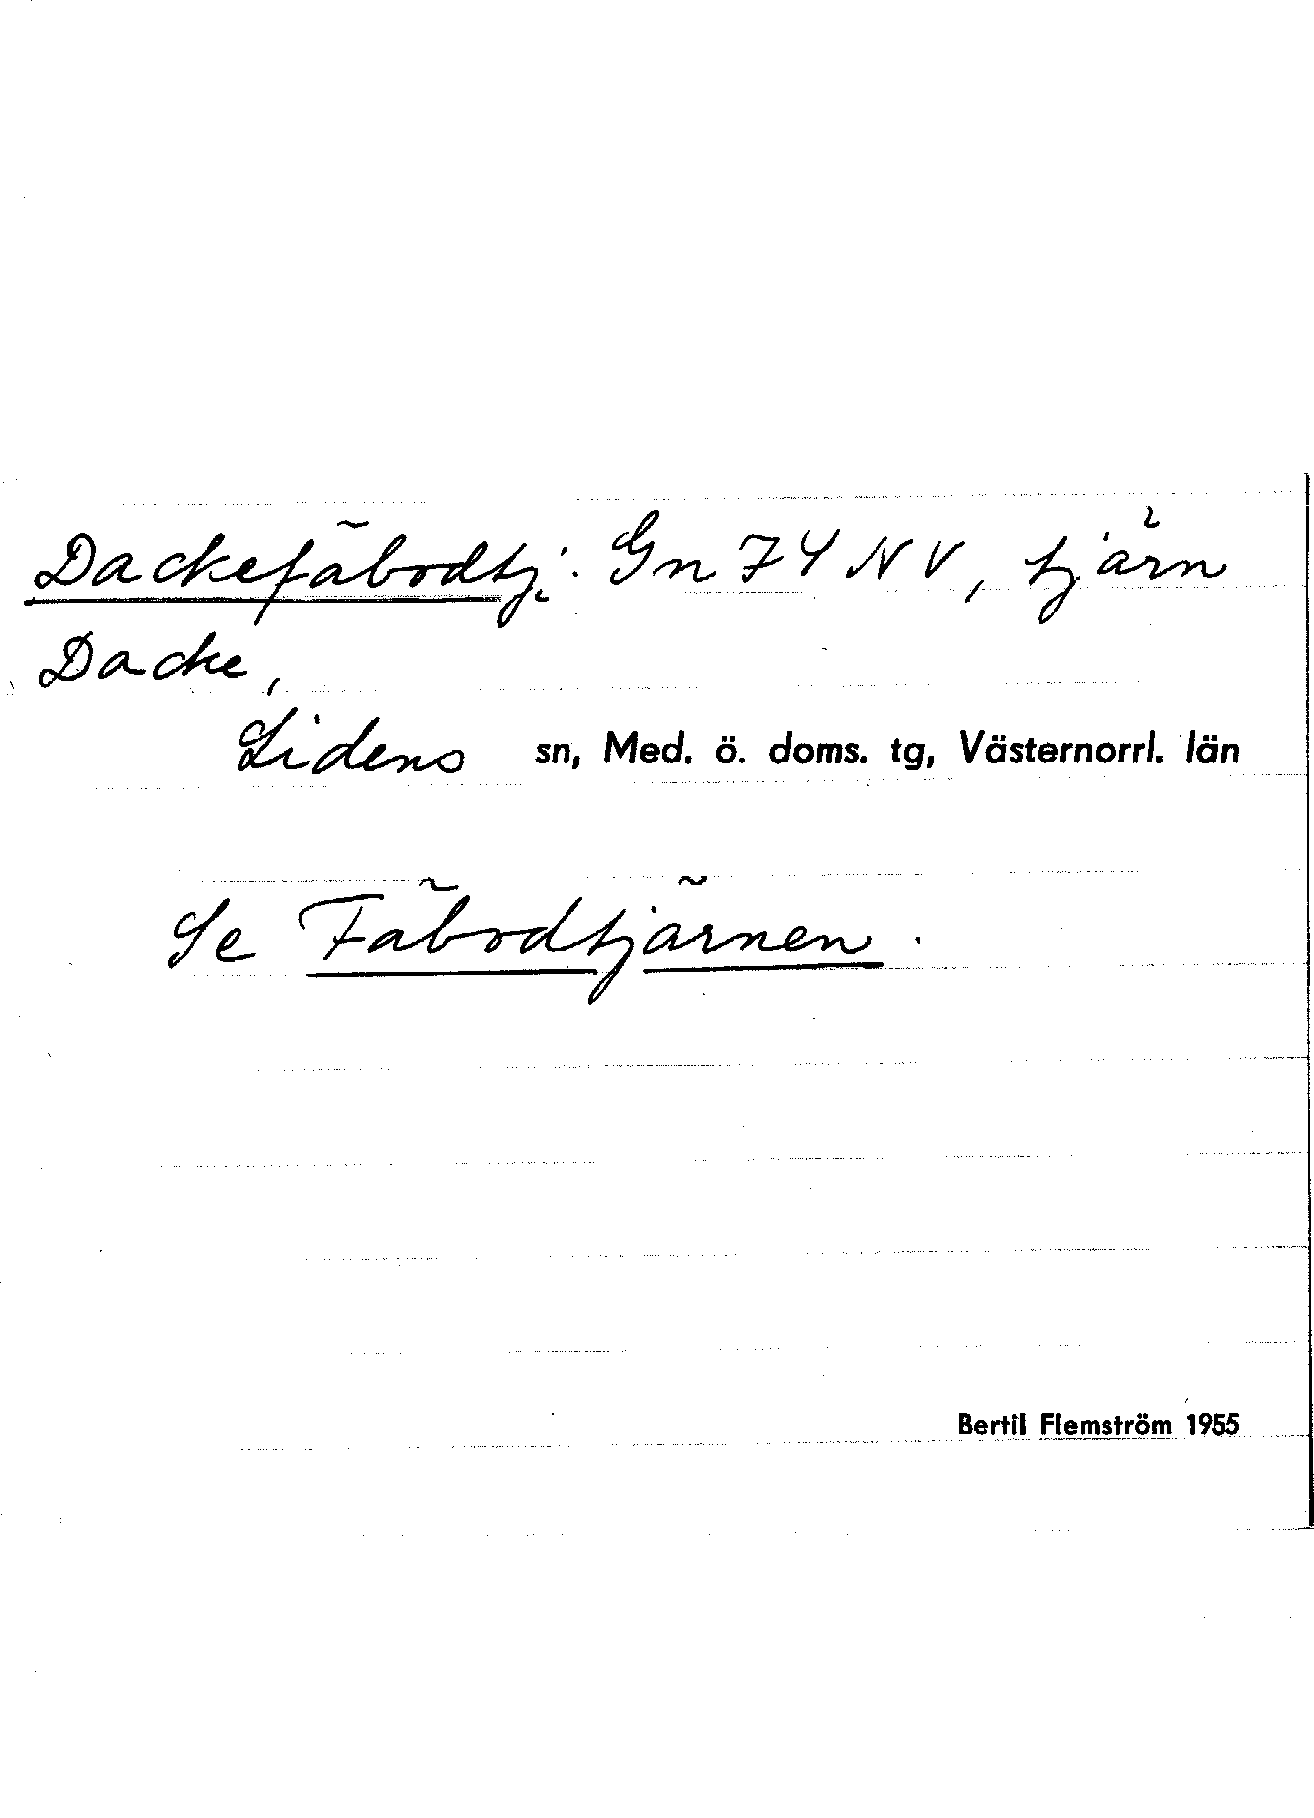 Dackefäbodtj: Gn 74 NV, tjärn
Dacke,
Lidens sn, Med. ö. doms. tg, Västernorrl. län
Se Fäbodtjärnen.
Bertil Flemström 1955